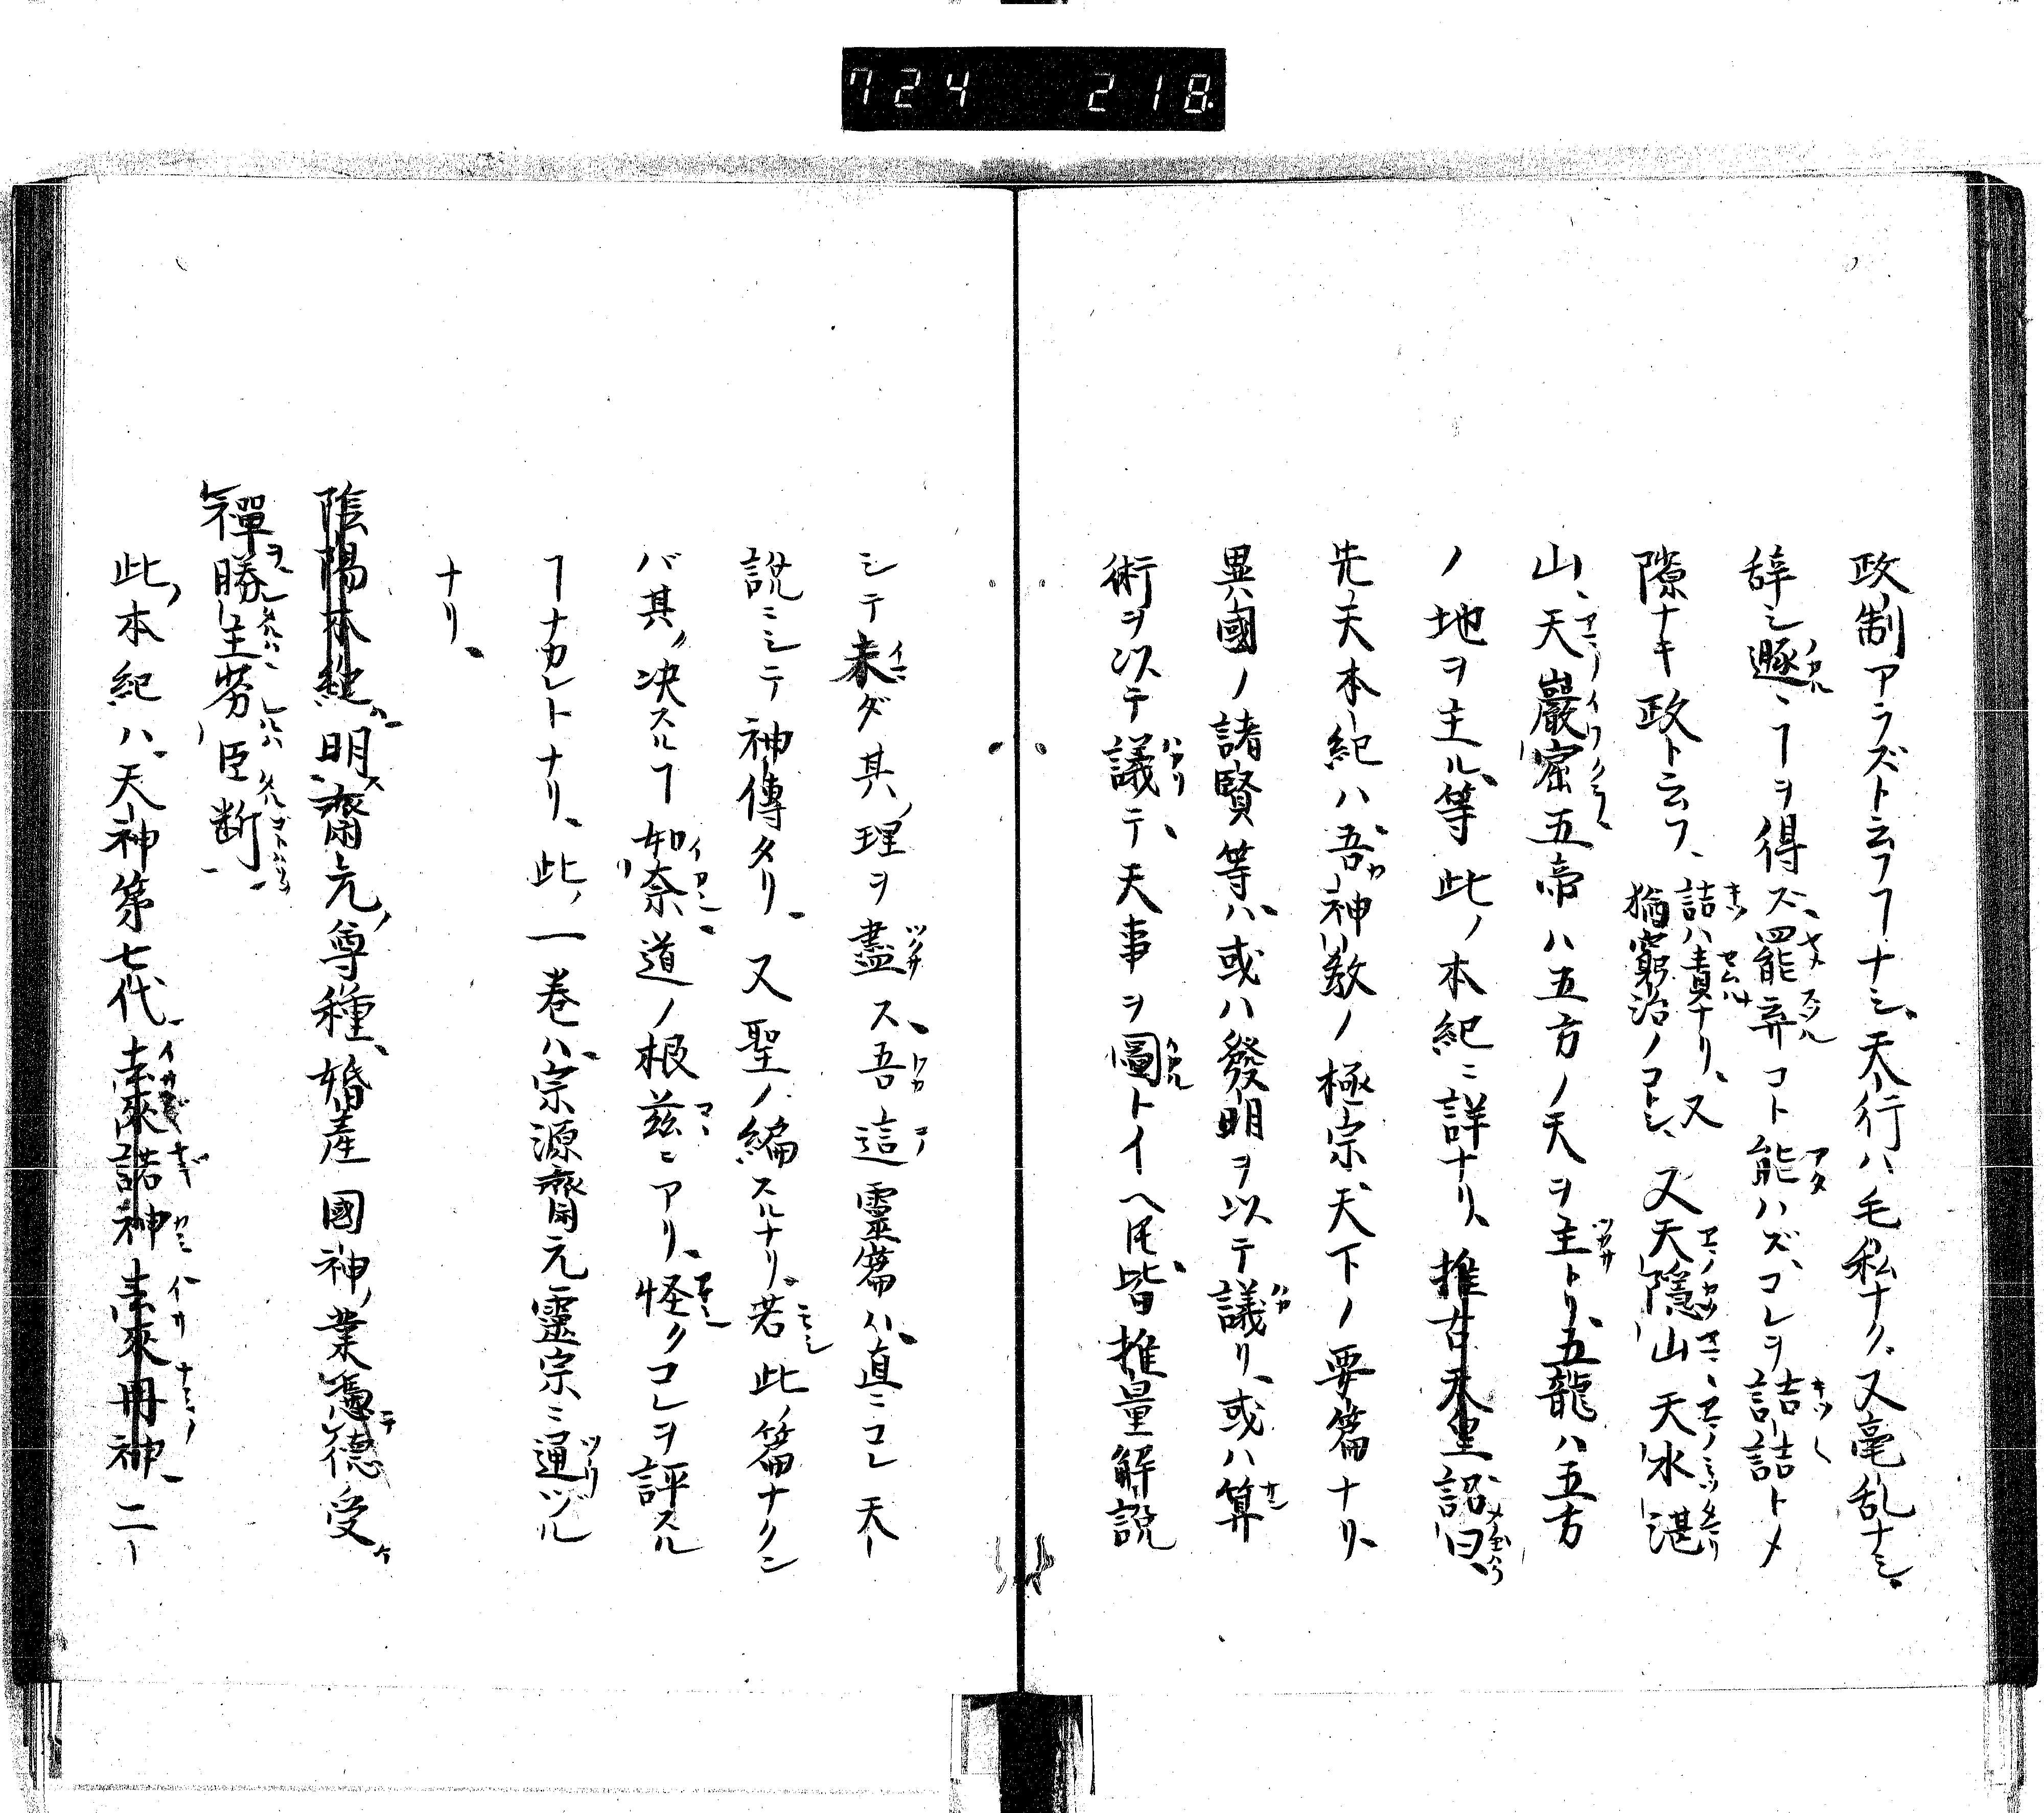 724 218
政制アラズト云フヿナシ、天行ハ毛私ナク、又毫乱ナシ、
辞シ遯ヽヿヲ得ズ、罷弃コト能ハズ、コレヲ詰詰トメ
隙ナキ政ト云フ、詰ハ責ナリ、又猶窮治ノコトシ、又天隱山天水湛
山、天巖窟五帝ハ五方ノ天ヲ主トリ、五龍ハ五方
ノ地ヲ主ル、等此ノ本紀ニ詳ナリ、推古天皇詔曰、
先天本紀ハ、吾神教ノ極宗、天下ノ要篇ナリ、
異國ノ諸賢等ハ、或ハ發明ヲ以テ議リ、或ハ算
術ヲ以テ議テ、天事ヲ圖トイヘ𪜈、皆推量解説
シテ未ダ其ノ理ヲ盡ス、吾這靈篇ハ、直ニコレ天
説ニシテ神傳タリ、又聖ノ編スルナリ、若此ノ篇ナクン
バ其ノ決スルヿ如奈、道ノ根茲ニアリ、怪クコレヲ評スル
ヿナカレトナリ、此ノ一巻ハ、宗源齋元靈宗ニ通ヅル
ナリ、
陰陽本紀ハ明齋元ノ尊種、婚産國神ノ業憑德受
禪勝主労臣断
此ノ本紀ハ、天神第七代去來諾神去來冊神二